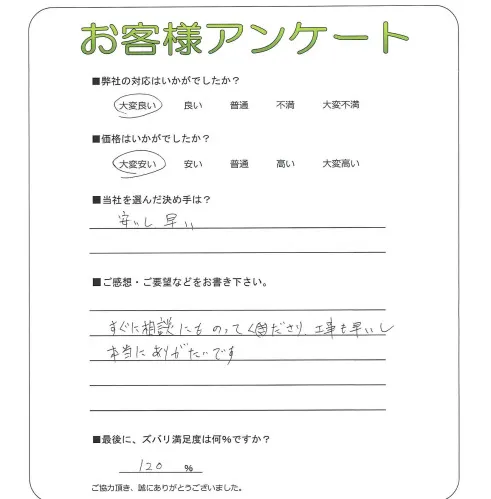 お客様アンケート
■弊社の対応はいかがでしたか？
大変良い 良い 普通 不満 大変不満
■価格はいかがでしたか？
大変安い 安い 普通 高い 大変高い
■当社を選んだ決め手は？
安いし 早い
■ご感想・ご要望などをお書き下さい。
すぐに相談にものってくださり、工事も早いし
本当にありがたいです
■最後に、ズバリ満足度は何%ですか？
120 %
ご協力頂き、誠にありがとうございました。